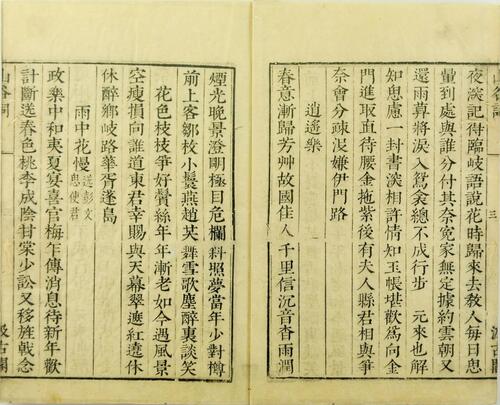 山谷詞
三
汲古閣
夜深記得臨岐語說花時歸來去教人每日思
量到處與誰分付其奈冤家無定據約雲朝又
還雨暮將淚入鴛衾總不成行步　元來也解
知思慮一封書深相許情知玉帳堪歡爲向金
門進取直待腰金拖紫後有夫人縣君相與爭
奈會分疎沒嫌伊門路
逍遥樂
春意漸歸芳艸故國佳人千里信沉音杳雨潤
煙光晚景澄明極目危欄斜照夢當年少對樽
前上客鄒枚小鬟燕趙共舞雪歌塵醉裏談笑
花色枝枝爭好鬢絲年年漸老如今遇風景
空瘦損向誰道東君幸賜與天幕翠遮紅遶休
休醉鄉岐路華胥蓬島
雨中花慢 送彭文思使君
政樂中和夷夏宴喜官梅乍傳消息待新年歡
計斷送春色桃李成陰甘棠少訟又移旌戟念
山谷詞
汲古閣